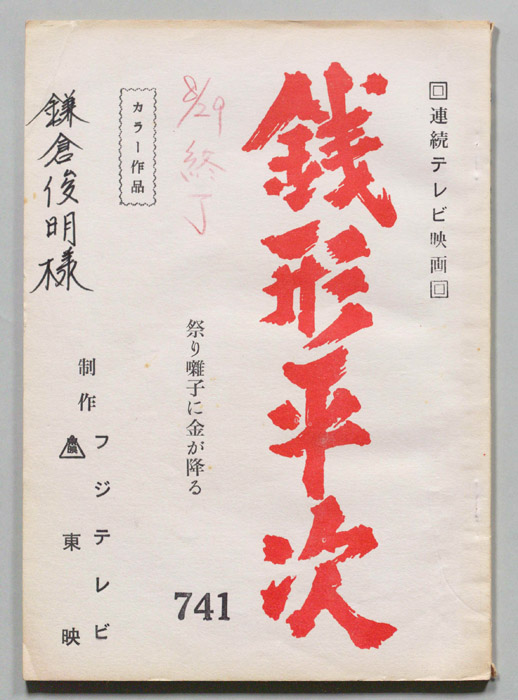 回連続テレビ映画回
銭形平次
祭り囃子に金が降る
741
8/29終了
カラー作品
制作
フジテレビ
東映
鎌倉俊明様